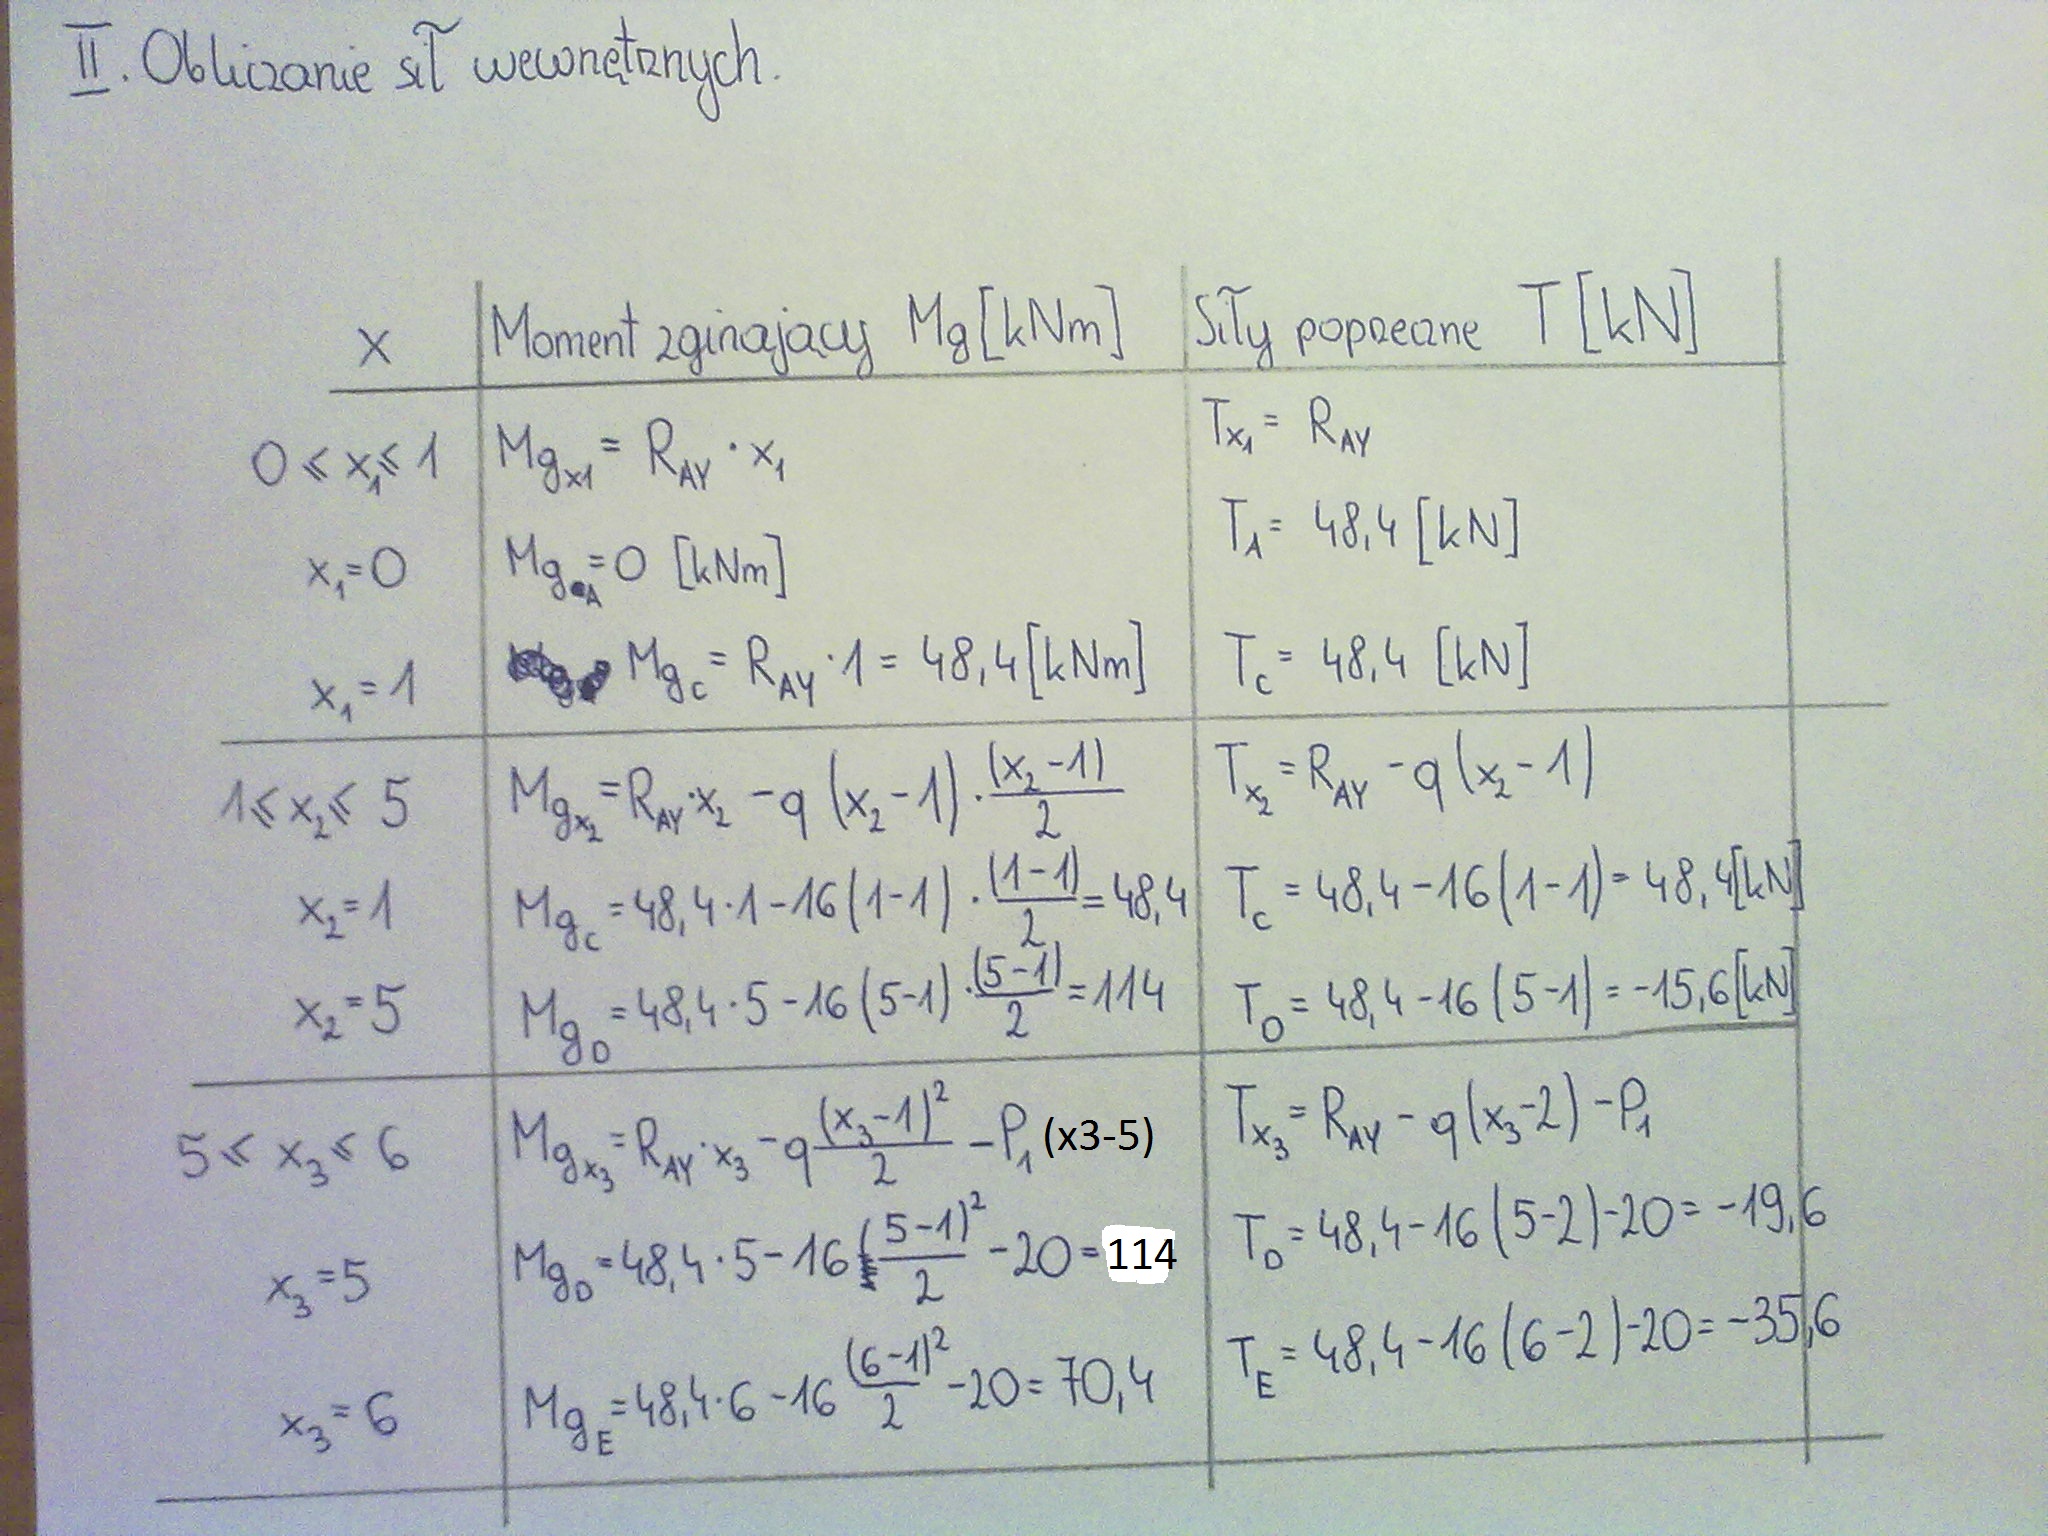 II. Obliczanie sił wewnętrznych.
x Moment zginający Mg [kNm] Siły poprzeczne T [kN]
0 ⩽ x₁ ⩽ 1 Mg_x1 = R_AY · x₁ T_x₁ = R_AY
x₁ = 0 Mg_A = 0 [kNm] T_A = 48,4 [kN]
x₁ = 1 Mg_C = R_AY · 1 = 48,4 [kNm] T_C = 48,4 [kN]
1 ⩽ x₂ ⩽ 5 Mg_x₂ = R_AY · x₂ - q (x₂ - 1) · (x₂ - 1)/2 T_x₂ = R_AY - q (x₂ - 1)
x₂ = 1 Mg_C = 48,4 · 1 - 16 (1-1) · (1-1)/2 = 48,4 T_C = 48,4 - 16 (1-1) = 48,4 [kN]
x₂ = 5 Mg_D = 48,4 · 5 - 16 (5-1) · (5-1)/2 = 114 T_D = 48,4 - 16 (5-1) = -15,6 [kN]
5 ⩽ x₃ ⩽ 6 Mg_x₃ = R_AY · x₃ - q (x₃ - 1)²/2 - P₁ (x3-5) T_x₃ = R_AY - q (x₃ - 2) - P₁
x₃ = 5 Mg_D = 48,4 · 5 - 16 (5-1)²/2 - 20 = 114 T_D = 48,4 - 16 (5-2) - 20 = -19,6
x₃ = 6 Mg_E = 48,4 · 6 - 16 (6-1)²/2 - 20 = 70,4 T_E = 48,4 - 16 (6-2) - 20 = -35,6